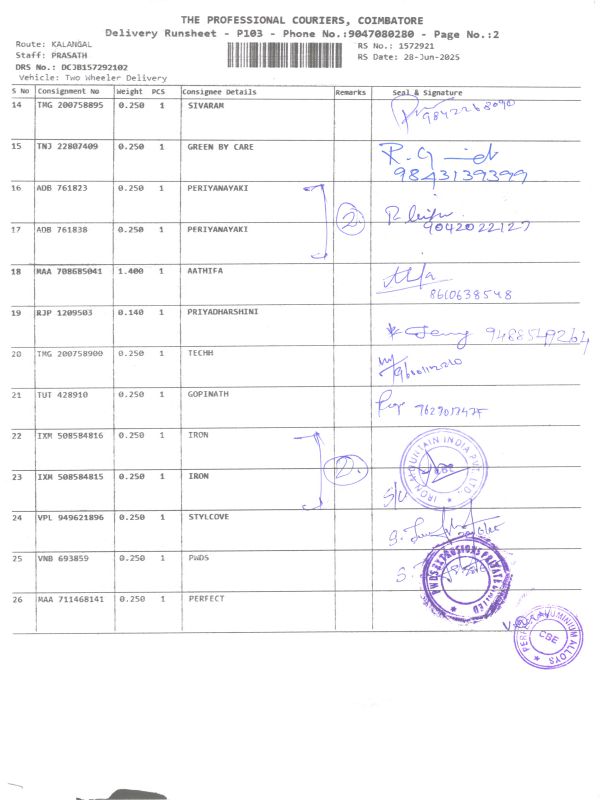 THE PROFESSIONAL COURIERS, COIMBATORE
Delivery Runsheet - P103 - Phone No.:9047080280 - Page No.:2
Route: KALANGAL RS No.: 1572921
Staff: PRASATH RS Date: 28-Jun-2025
DRS No.: DCJB157292102
Vehicle: Two Wheeler Delivery
S No Consignment No Weight PCS Consignee Details Remarks Seal & Signature
14 TMG 200758895 0.250 1 SIVARAM
9842268090
15 TNJ 22807409 0.250 1 GREEN BY CARE
9843139399
16 ADB 761823 0.250 1 PERIYANAYAKI
2
17 ADB 761838 0.250 1 PERIYANAYAKI
9042022127
18 MAA 708685041 1.400 1 AATHIFA
8610638548
19 RJP 1209503 0.140 1 PRIYADHARSHINI
9488549264
20 TMG 200758900 0.250 1 TECHH
21 TUT 428910 0.250 1 GOPINATH
22 IXM 508584816 0.250 1 IRON
2.
IRON MOUNTAIN INDIA PVT. LTD.
23 IXM 508584815 0.250 1 IRON
24 VPL 949621896 0.250 1 STYLCOVE
25 VNB 693859 0.250 1 PWDS
PWDS EXTRUSIONS PRIVATE LIMITED
26 MAA 711468141 0.250 1 PERFECT
PERFECT ALUMINIUM ALLOYS
CBE